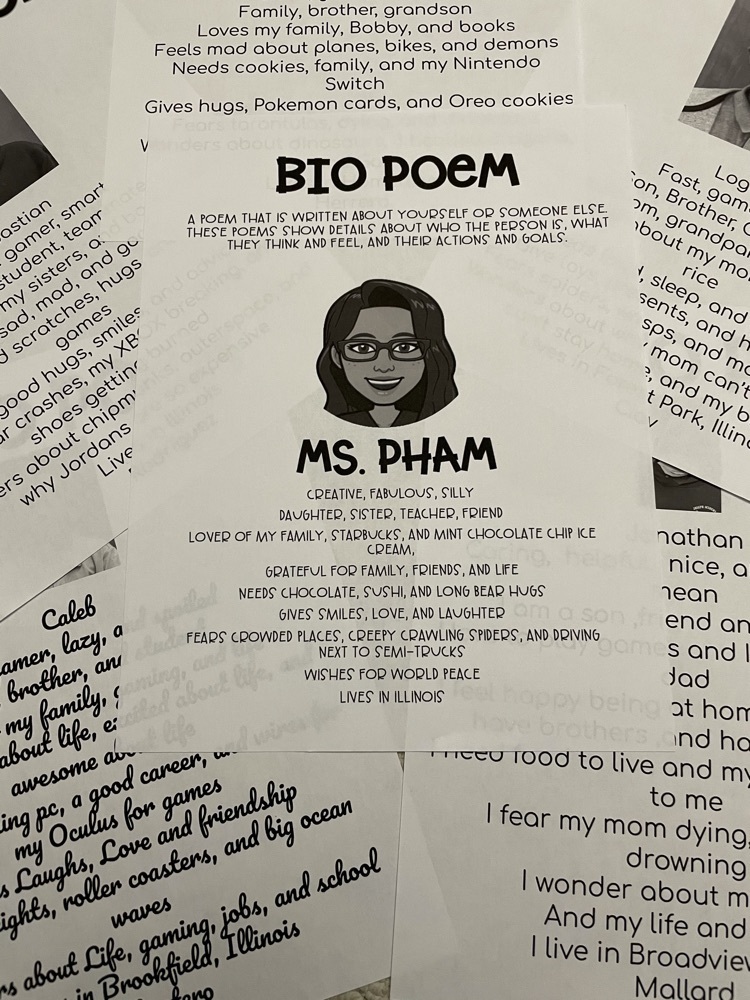 Family, brother, grandson
Loves my family, Bobby, and books
Feels mad about planes, bikes, and demons
Needs cookies, family, and my Nintendo
Switch
Gives hugs, Pokemon cards, and Oreo cookies
BIO POEM
A POEM THAT IS WRITTEN ABOUT YOURSELF OR SOMEONE ELSE.
THESE POEMS SHOW DETAILS ABOUT WHO THE PERSON IS, WHAT
THEY THINK AND FEEL, AND THEIR ACTIONS AND GOALS.
MS. PHAM
CREATIVE, FABULOUS, SILLY
DAUGHTER, SISTER, TEACHER, FRIEND
LOVER OF MY FAMILY, STARBUCKS, AND MINT CHOCOLATE CHIP ICE
CREAM,
GRATEFUL FOR FAMILY, FRIENDS, AND LIFE
NEEDS CHOCOLATE, SUSHI, AND LONG BEAR HUGS
GIVES SMILES, LOVE, AND LAUGHTER
FEARS CROWDED PLACES, CREEPY CRAWLING SPIDERS, AND DRIVING
NEXT TO SEMI-TRUCKS
WISHES FOR WORLD PEACE
LIVES IN ILLINOIS
gamer, smart
student, team
my sisters, a
sad, mad, and go
scratches, hugs
games
good hugs, smiles
crashes, my XB
shoes getting
about chipm
why Jordans
Live
Fast, gam
son, Brother,
grandpa
about my mo
rice
sleep, and
sents, and h
and mo
mom can't
and my b
Park, Illin
Caleb
gamer, lazy, a
brother, an
my family,
about life, e
awesome
pc, a good career,
my Oculus for games
Laughs, Love and friendship
roller coasters, and big ocean
waves
about Life, gaming, jobs, and school
in Brookfield, Illinois
nathan
nice, a
mean
end an
s and I
dad
at hom
and ha
I need food to live and my
to me
I fear my mom dying,
drowning
I wonder about m
And my life and
I live in Broadview
Mallard